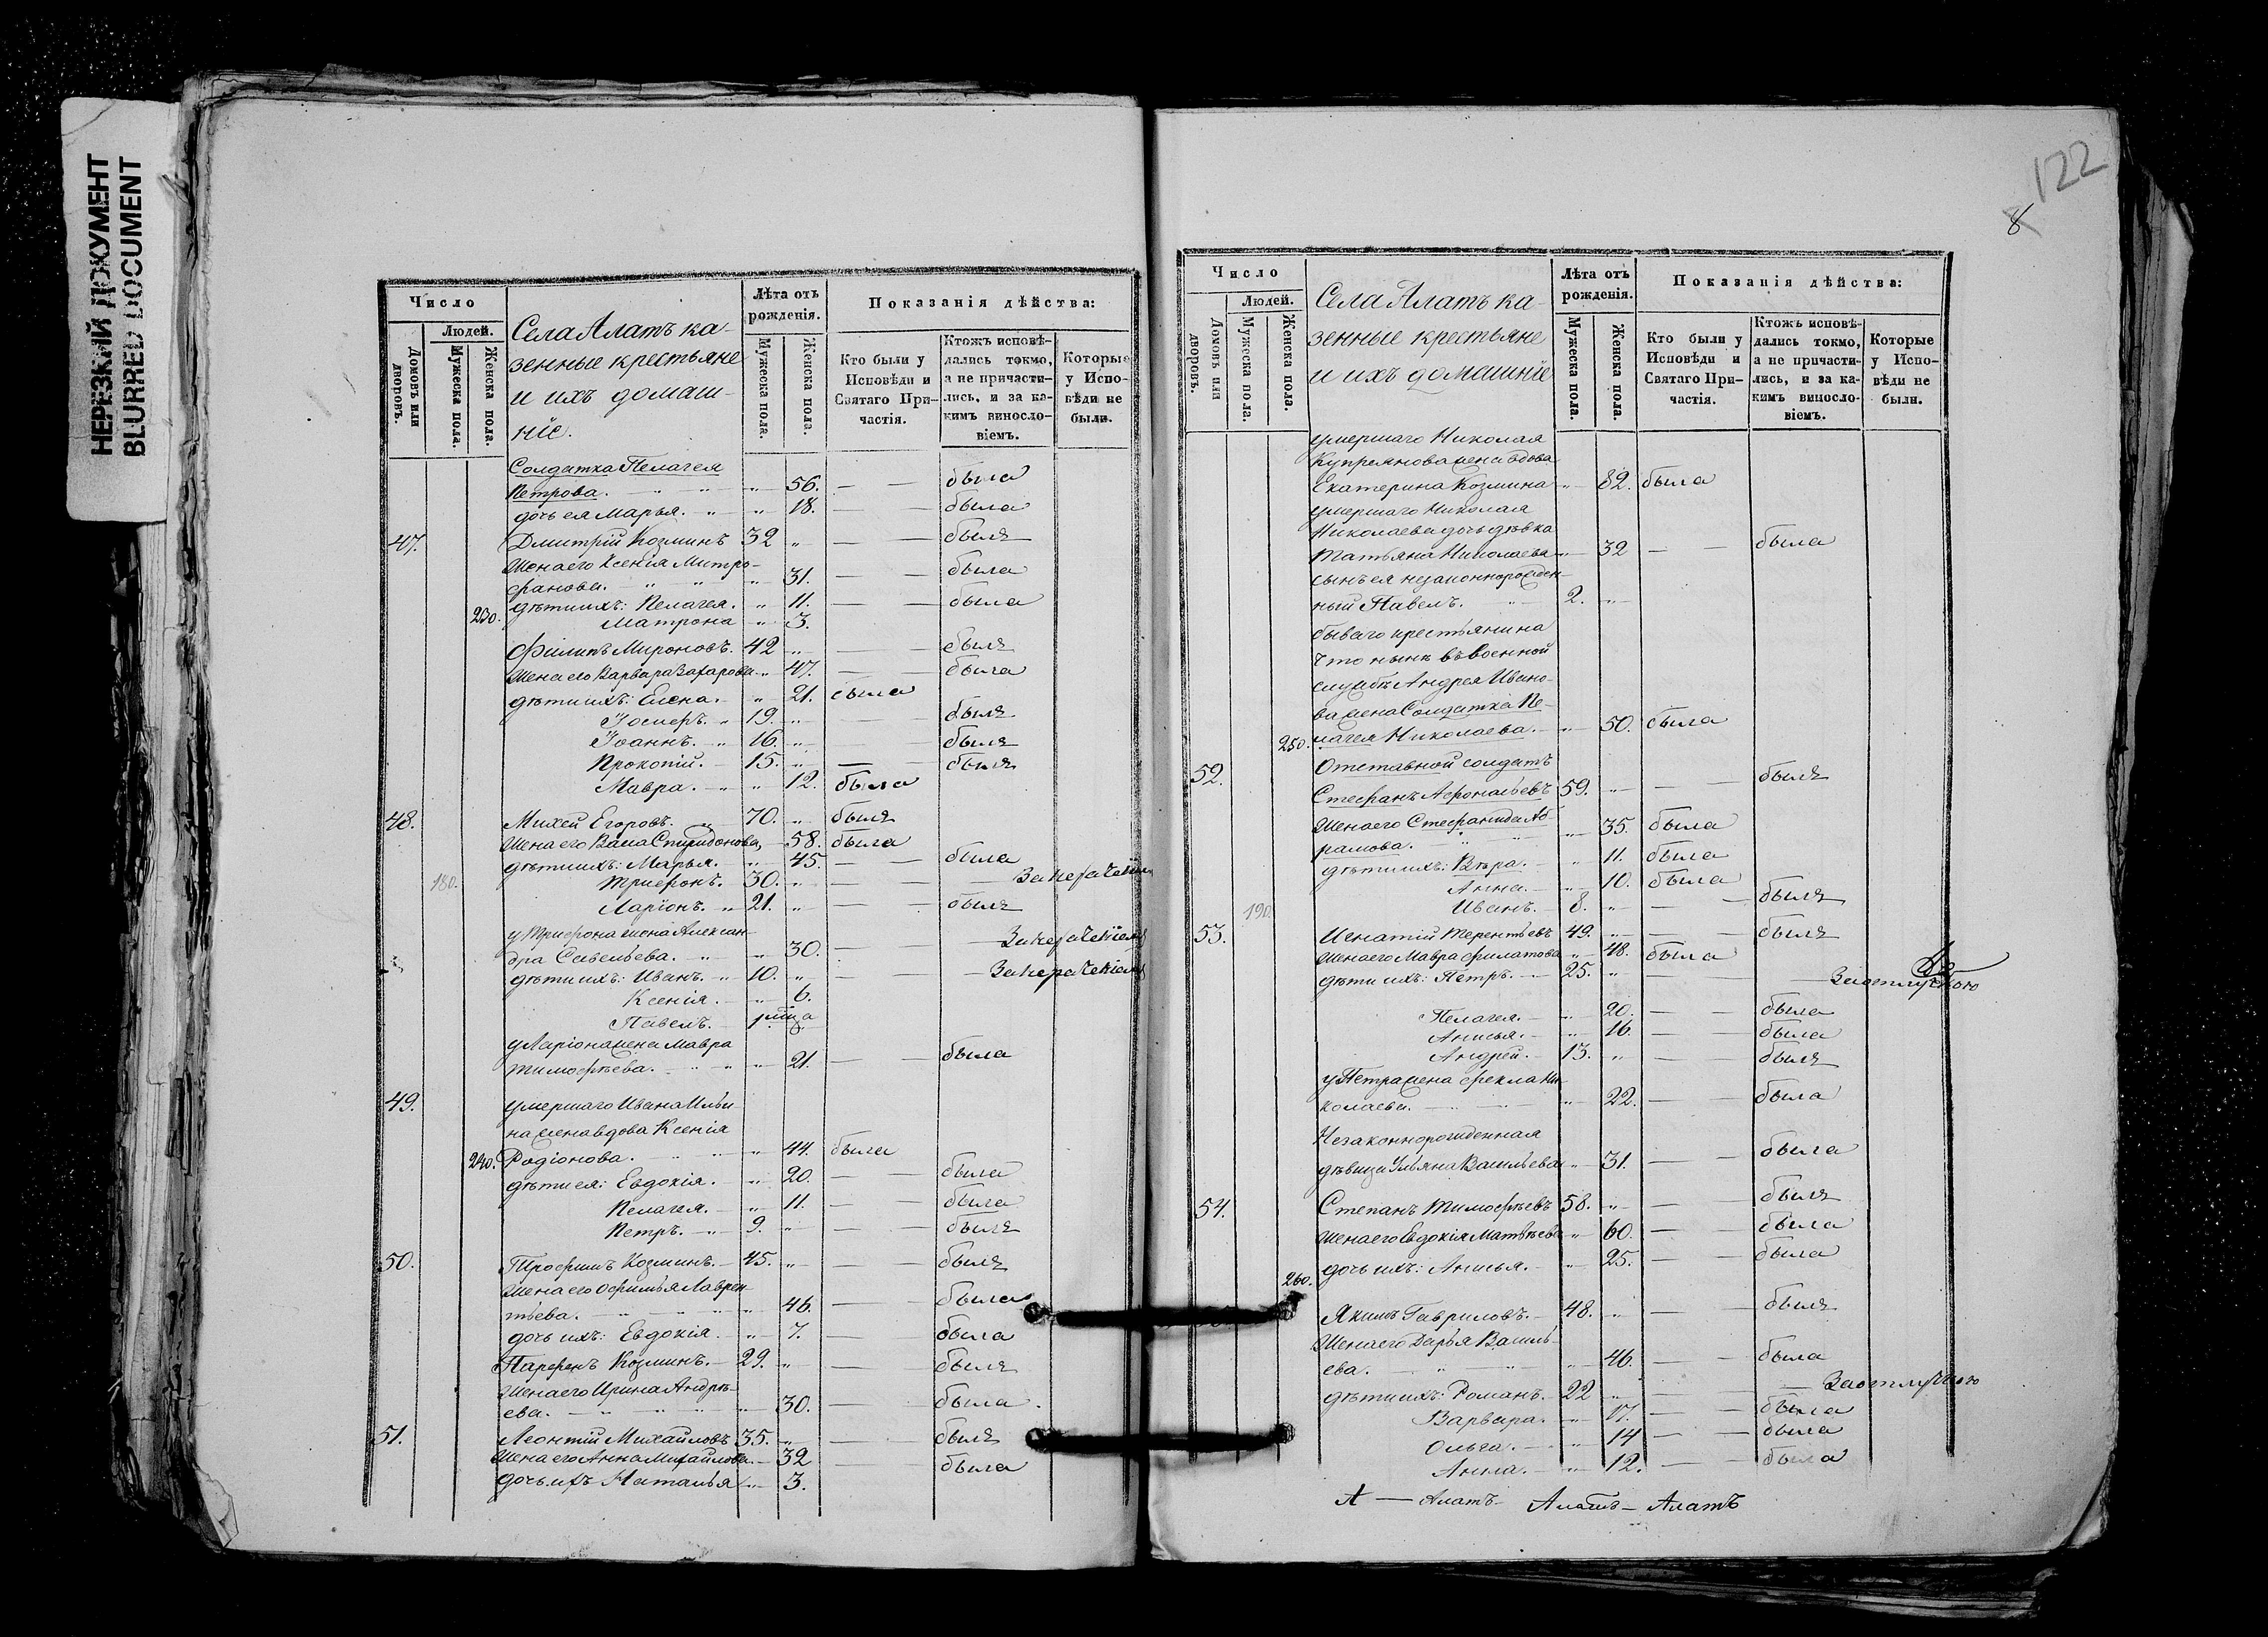 НЕРЕЗКИЙ ДОКУМЕНТ
BLURRED DOCUMENT
Число
Людей.
Домовъ или дворовъ.
Мужеска пола.
Женска пола.
Села Алатъ ка-
зенные крестьяне
и ихъ домаш-
ніе.
Лѣта отъ рожденія.
Мужеска пола.
Женска пола.
Показанія дѣйства:
Кто были у Исповѣди и Святаго При-частія.
Ктожъ исповѣ-дались токмо, а не причасти-лись, и за ка-кимъ винослo-віемъ.
Которые у Испо-вѣди не были.
Солдатка Пелагея
Петрова. 56. была
дочь ея Марья. 18. была
47. Дмитрій Козминъ 32 былъ
Жена его Ксенія Митро-
фанова. 31. была
дѣти ихъ: Пелагея. 11. была
230. Матрона 3.
Филипъ Мироновъ. 42 былъ
Жена его Варвара Захарова 47. была
дѣти ихъ: Елена. 21. была
Іосифъ. 19. былъ
Іоаннъ. 16. былъ
Прокопій. 15. былъ
Мавра. 12. была
48. Михей Егоровъ. 70. былъ
Жена его Васа Спиридонова 58. была
дѣти ихъ: Марья. 45. была
180. Трифонъ. 30.
Ларіонъ. 21. былъ
у Трифона жена Алексан-
дра Савельева. 30.
дѣти ихъ: Иванъ. 10.
Ксенія. 6.
Павелъ. 1 мца
у Ларіона жена Мавра
Тимофѣева. 21. была
49. умершаго Ивана Ильи-
на жена вдова Ксенія
240. Родіонова. 44. была
дѣти ея: Евдокія. 20. была
Пелагея. 11. была
Петръ. 9. былъ
50. Трофимъ Козминъ. 45. былъ
Жена его Офимья Лаврен-
тьева. 46. была
дочь ихъ: Евдокія. 7. была
Парфенъ Козминъ. 29. былъ
Жена его Ирина Андрѣ-
ева. 30. была.
51. Леонтій Михайловъ 35. былъ
Жена его Анна Михайлова. 32 была
дочь ихъ Наталья 3.
122
8
Число
Людей.
Домовъ или дворовъ.
Мужеска пола.
Женска пола.
Села Алатъ ка-
зенные крестьяне
и ихъ домашніе
Лѣта отъ рожденія.
Мужеска пола.
Женска пола.
Показанія дѣйства:
Кто были у Исповѣди и Святаго При-частія.
Ктожъ исповѣ-дались токмо, а не причасти-лись, и за ка-кимъ винослo-віемъ.
Которые у Испо-вѣди не были.
умершаго Николая
Купреянова жена вдова
Екатерина Козмина 82. была
умершаго Николая
Николаева дочь дѣвка
Татьяна Николаева 32 была
сынъ ея незаконнорожден-
ный Павелъ. 2.
бываго крестьянина
что нынѣ въ военной
службѣ Андрея Ивано-
ва жена Солдатка Пе-
250. лагея Николаева. 50. была
52. Отставной солдатъ
Стефанъ Афонасьевъ 59. былъ
Жена его Стефанида Аб
рамова. 35. была
дѣти ихъ: Вѣра. 11. была
Анна. 10. была
190. Иванъ. 8. былъ
53. Игнатій Терентьевъ 49. былъ
Жена его Мавра Филатова 48. была
дѣти ихъ: Петръ. 25. За отлучкою
Пелагея. 20. была
Анисья. 16. была
Андрей. 13. былъ
у Петра жена Фекла Ни-
колаева. 22. была
Незаконнорожденная
дѣвица Ульяна Васильева 31. была
54. Степанъ Тимофѣевъ 58. былъ
Жена его Евдокія Матвѣева 60. была
дочь ихъ: Анисья. 25. была
260.
Якимъ Гавриловъ. 48. былъ
Жена его Дарья Василь-
ева. 46. была
дѣти ихъ: Романъ. 22 За отлучкою
Варвара. 17. была
Ольга. 14 была
Анна. 12. была
А — Алатъ — Алатъ — Алатъ